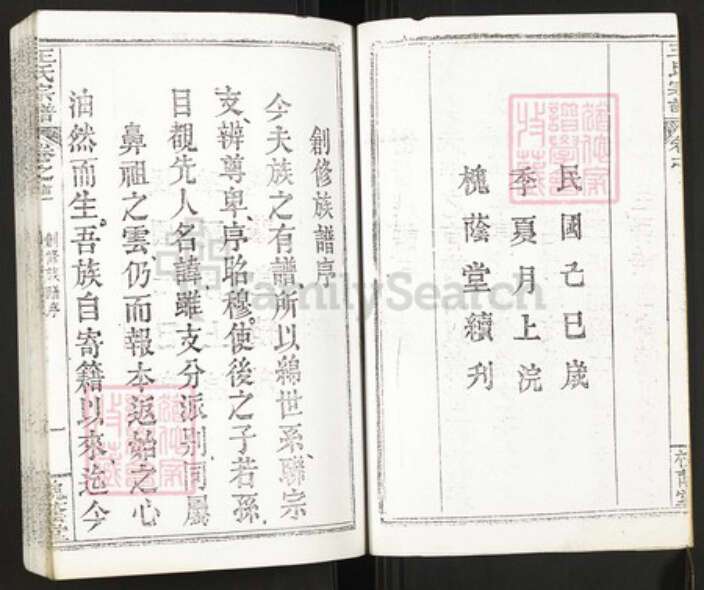 王氏宗譜
民國己巳歲
季夏月上浣
槐蔭堂續刋
創修族譜序
今夫族之有譜、所以綿世系、聯宗
支、辨尊卑、序昭穆。使後之子若孫、
目覩先人名諱、雖支分派別、同屬
鼻祖之雲仍而報本返始之心
油然而生。吾族自寄籍以來、迄今
王氏宗譜 卷之首
創修族譜序
一
槐蔭堂
FamilySearch